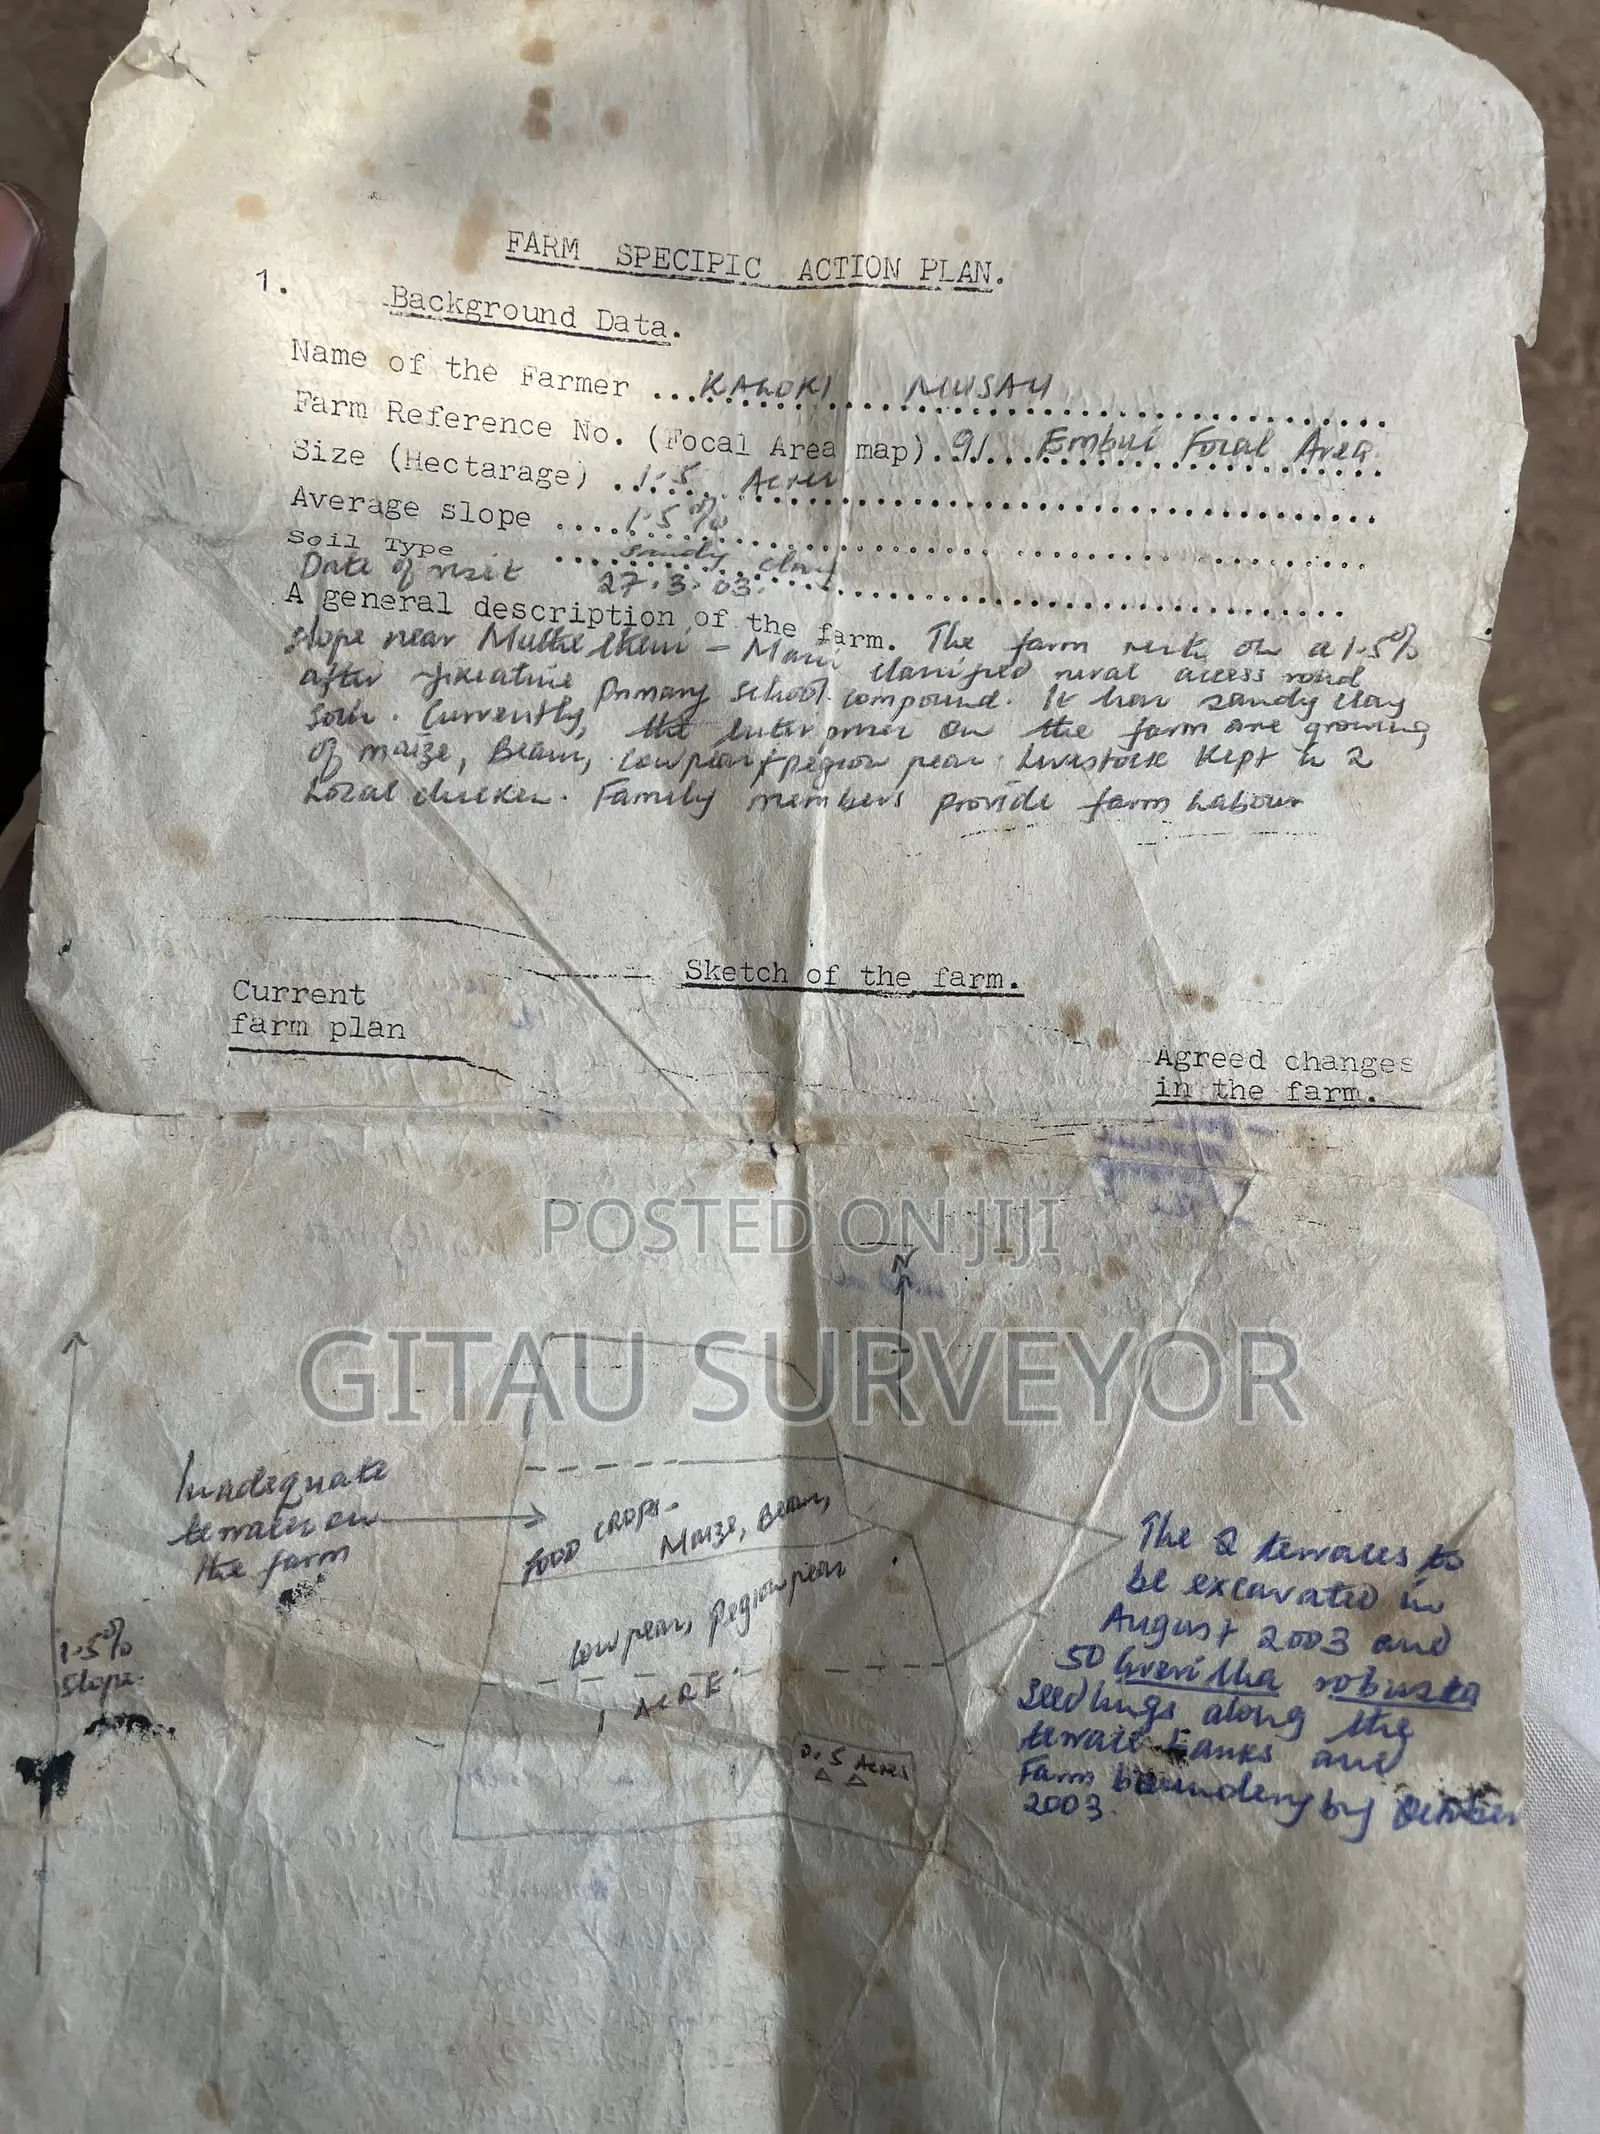 FARM SPECIPIC ACTION PLAN.
1. Background Data.
Name of the Farmer ... KALOKI MUSAU
Farm Reference No. (Focal Area map). 91 Embui Focal Area
Size (Hectarage) 1.5 Acres
Average slope .... 1.5%
Soil Type sandy clay
Date of visit 27.3.03.
A general description of the farm. The farm rests on a 1.5%
slope near classified rural access road
after primary school compound. It has sandy clay
soils. Currently, the enterprises on the farm are growing
of maize, Beans, cowpeas + pegion peas Livestock kept is 2
Local chicken. Family members provide farm labour
Sketch of the farm.
Current
farm plan
Agreed changes
in the farm.
POSTED ON JIJI
N
GITAU SURVEYOR
Inadequate
terraces on
the farm
FOOD CROPS-
Maize, Beans,
Cowpeas, pegion peas
1 ACRE.
0.5 Acres
1.5%
Slope.
The 2 terraces to
be excavated in
August 2003 and
50 Grevillea robusta
seedlings along the
terrace banks and
Farm boundery by October
2003.